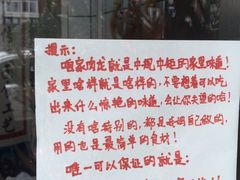 提示：
咱家坊龙就是中规中矩的家里味道！
家里啥样就是啥样的，不要想着可以吃
出来什么惊艳的味道，会让你失望的哈！
没有啥特别的，都是妈妈自己做的，
用的也是最简单的食材！
唯一可以保证的就是：
工艺